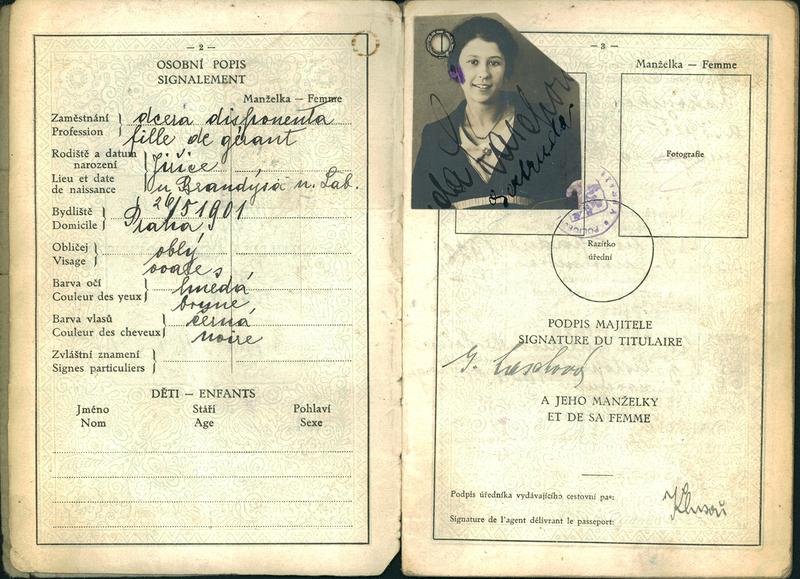 — 2 —
OSOBNÍ POPIS
SIGNALEMENT
Manželka — Femme
Zaměstnání
Profession
dcera disponenta
fille de gérant
Rodiště a datum
narození
Lieu et date
de naissance
Jiřice
u Brandýsa n. Lab.
26/5 1901
Bydliště
Domicile
Praha
Obličej
Visage
oblý
ovale
Barva očí
Couleur des yeux
hnedá
brune
Barva vlasů
Couleur des cheveux
černá
noire
Zvláštní znamení
Signes particuliers
DĚTI — ENFANTS
Jméno Stáří Pohlaví
Nom Age Sexe
— 3 —
Manželka — Femme
Fotografie
Razítko
úřední
PODPIS MAJITELE
SIGNATURE DU TITULAIRE
A JEHO MANŽELKY
ET DE SA FEMME
Podpis úředníka vydávajícího cestovní pas:
Signature de l'agent délivrant le passeport: